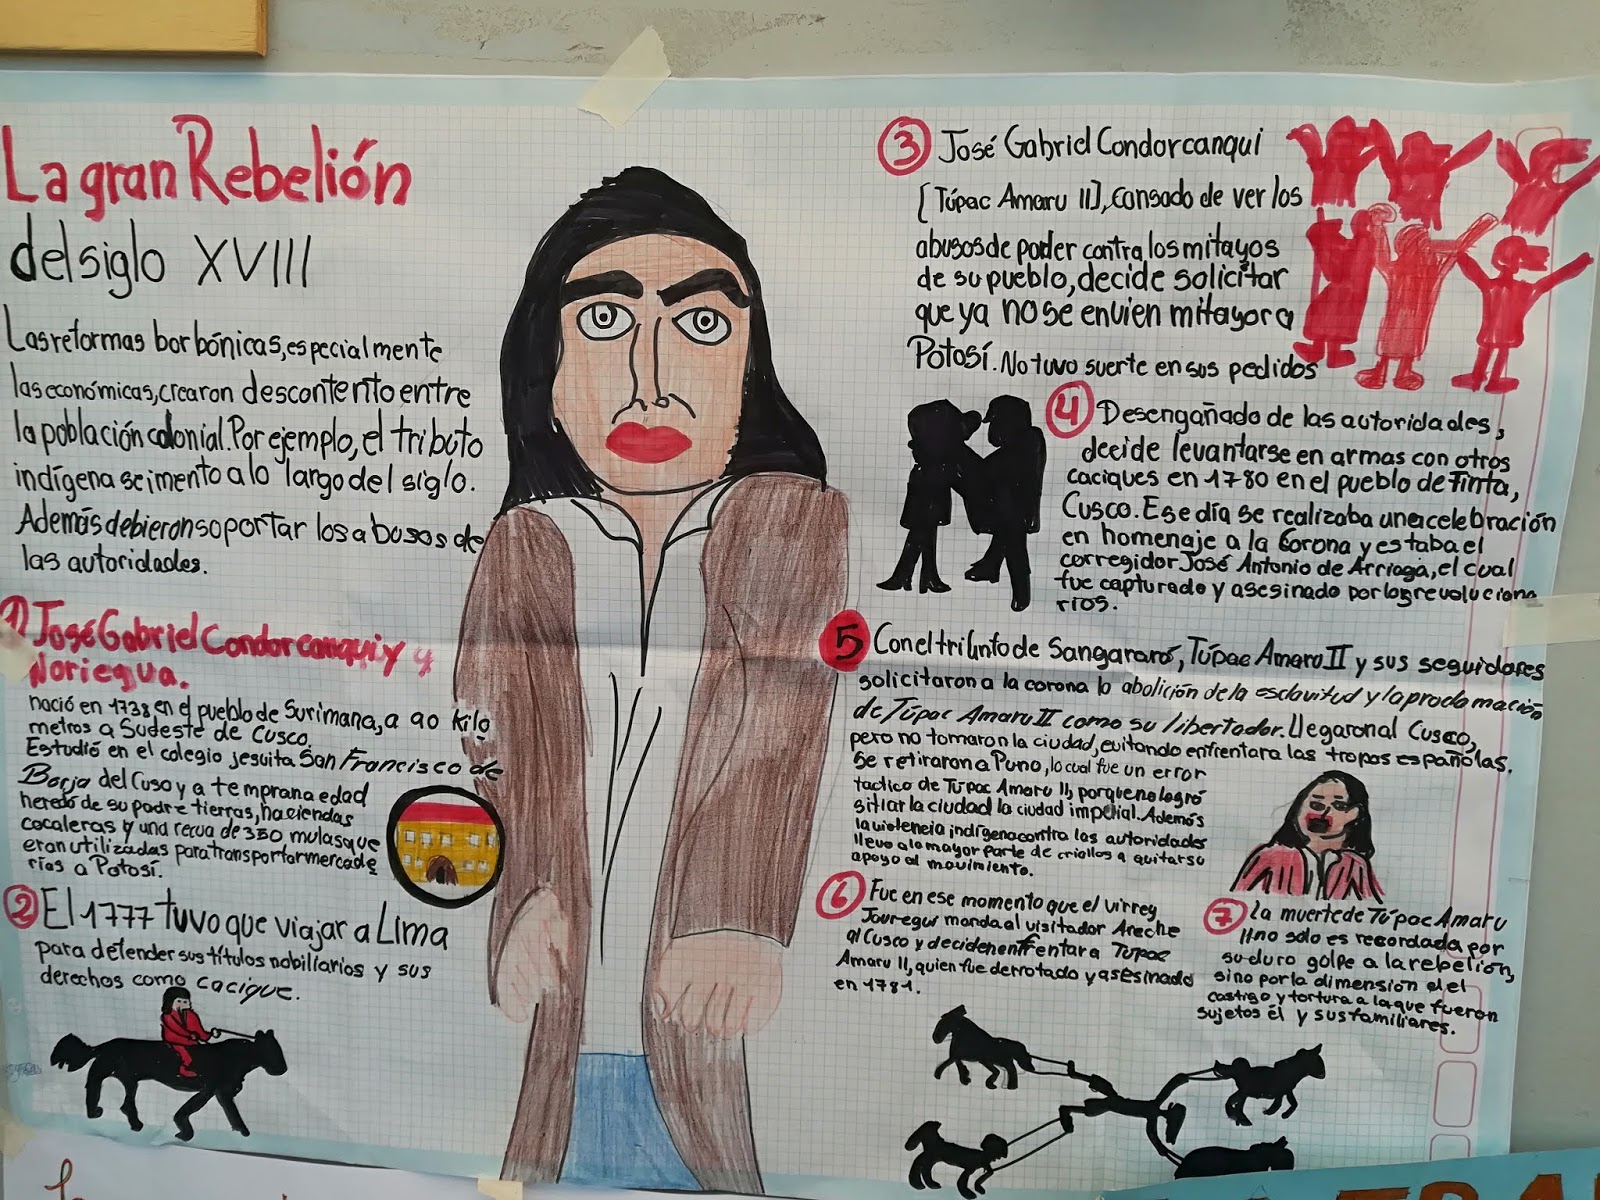 La gran Rebelión
del siglo XVIII
Las reformas borbónicas, especialmente
las económicas, crearon descontento entre
la población colonial. Por ejemplo, el tributo
indígena se imento a lo largo del siglo.
Además debieron soportar los abusos de
las autoridades.
1) José Gabriel Condorcanqui y y
Noriegua.
nació en 1738 en el pueblo de Surimana, a 90 kilo
metros a Sudeste de Cusco.
Estudió en el colegio jesuita San Francisco de
Borja del Cuso y a temprana edad
heredó de su padre tierras, haciendas
cocaleras y una recua de 350 mulas que
eran utilizadas para transportar mercade
rías a Potosí.
2 El 1777 tuvo que viajar a Lima
para defender sus títulos nobiliarios y sus
derechos como cacique.
3 José Gabriel Condorcanqui
[Túpac Amaru II], cansado de ver los
abusos de poder contra los mitayos
de su pueblo, decide solicitar
que ya no se envien mitayor a
Potosí. No tuvo suerte en sus pedidos
4 Desengañado de las autoridades,
decide levantarse en armas con otros
caciques en 1780 en el pueblo de Tinta,
Cusco. Ese día se realizaba una celebración
en homenaje a la Corona y estaba el
corregidor José Antonio de Arriaga, el cual
fue capturado y asesinado por los revoluciona
rios.
5 Con el triunfo de Sangarará, Túpac Amaru II y sus seguidores
solicitaron a la corona la abolición de la esclavitud y la proclamación
de Túpac Amaru II como su libertador. Llegaron al Cusco,
pero no tomaron la ciudad, evitando enfrentar a las tropas españolas.
Se retiraron a Puno, lo cual fue un error
tactico de Túpac Amaru II, porque no logró
sitiar la ciudad la ciudad imperial. Además
la violencia indígena contra las autoridades
llevo a la mayor parte de criollos a quitar su
apoyo al movimiento.
6 Fue en ese momento que el virrey
Jauregui manda al visitador Areche
al Cusco y deciden enfrentar a Túpac
Amaru II, quien fue derrotado y asesinado
en 1781.
7 La muerte de Túpac Amaru
II no solo es recordada por
su duro golpe a la rebelión,
sino por la dimensión del
castigo y tortura a la que fueron
sujetos él y sus familiares.